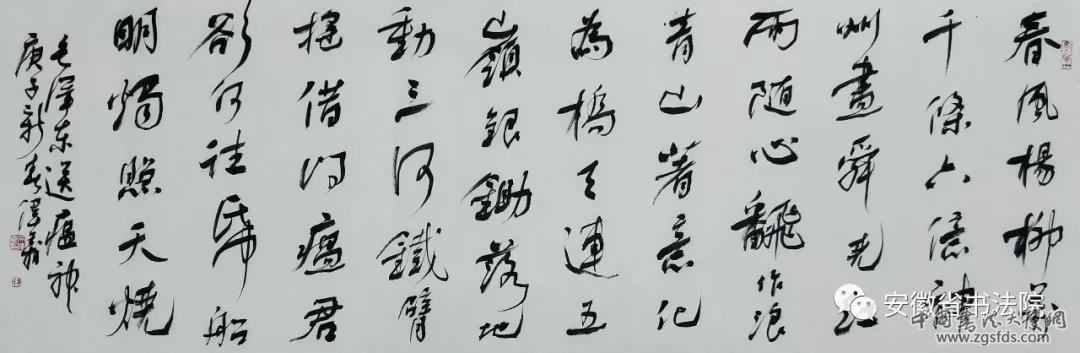 春風楊柳萬
千條六億神
州盡舜尭红
雨随心飜作浪
青山著意化
為橋天連五
嶺銀鋤落地
動三河鐵臂
摇借问瘟君
欲何往帋船
明燭照天燒
毛澤东送瘟神
庚子新春
安徽省书法院
中國書法大師網
www.zgsfds.com